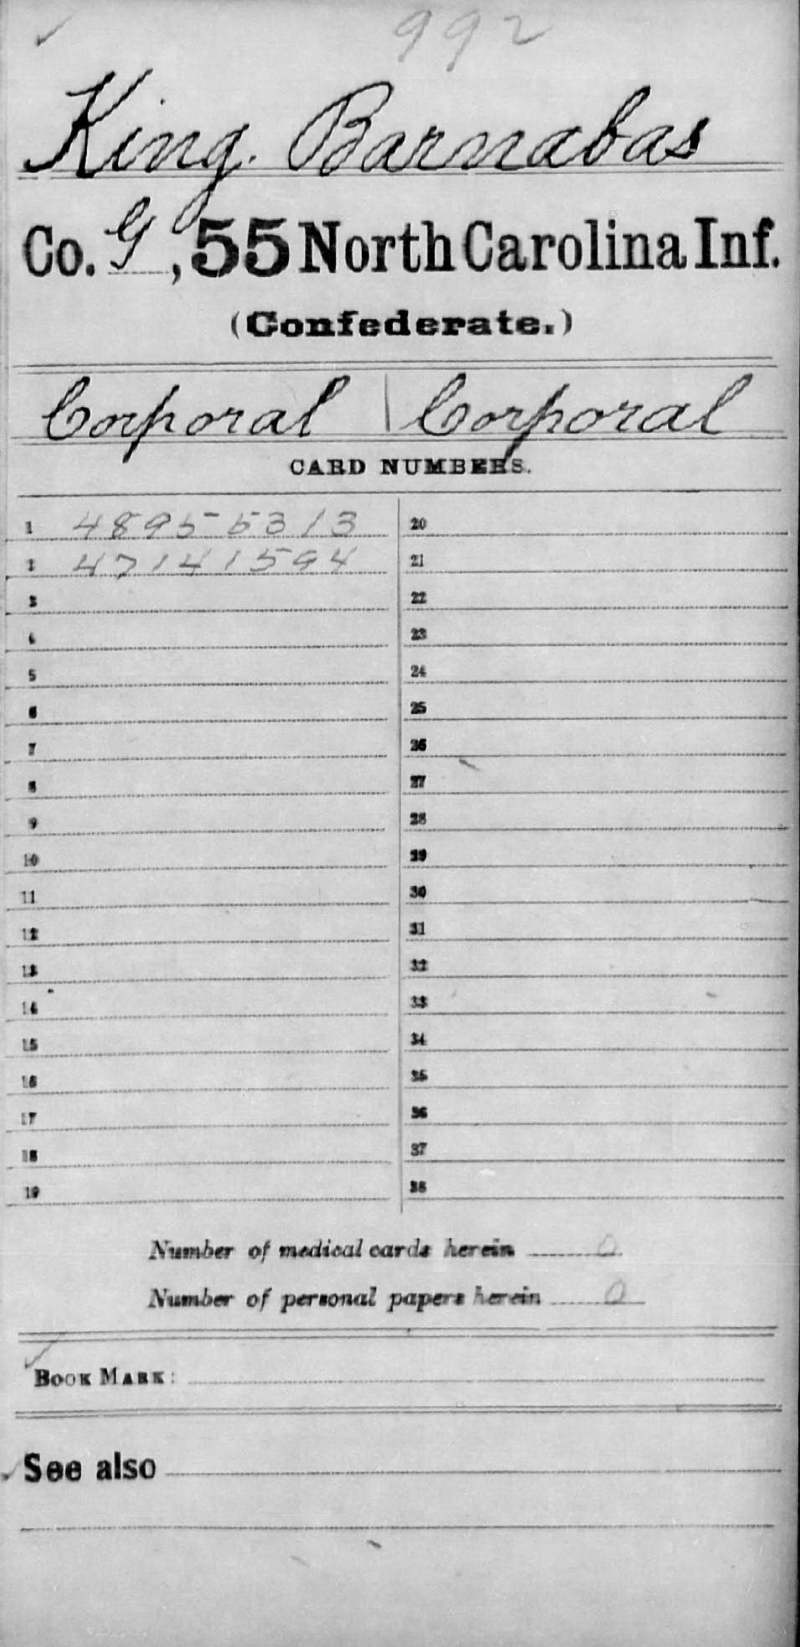 992
King. Barnabas
Co. G, 55 North Carolina Inf.
(Confederate.)
Corporal | Corporal
CARD NUMBERS.
1 48955313 20
2 47141594 21
3 22
4 23
5 24
6 25
7 26
8 27
9 28
10 29
11 30
12 31
13 32
14 33
15 34
16 35
17 36
18 37
19 38
Number of medical cards herein 0
Number of personal papers herein 0
BOOK MARK:
See also